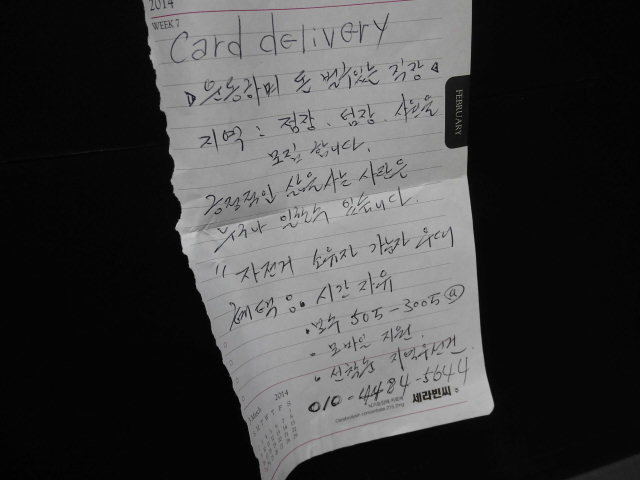 2014
WEEK 7
Card delivery
운동하며 돈 벌수있는 직장
FEBRUARY
지역 : 점장. 팀장. 사원을
모집 합니다.
긍정적인 삶을 사는 사람은
누구나 일할수 있습니다.
" 자전거 소유자 가능자 우대
혜택 • 시간 자유
• 보수 505-3005 @
• 모바일 지원.
• 선착순 지역우선권
010-4484-5644
March 2014
S M T W T F S
세라빈씨